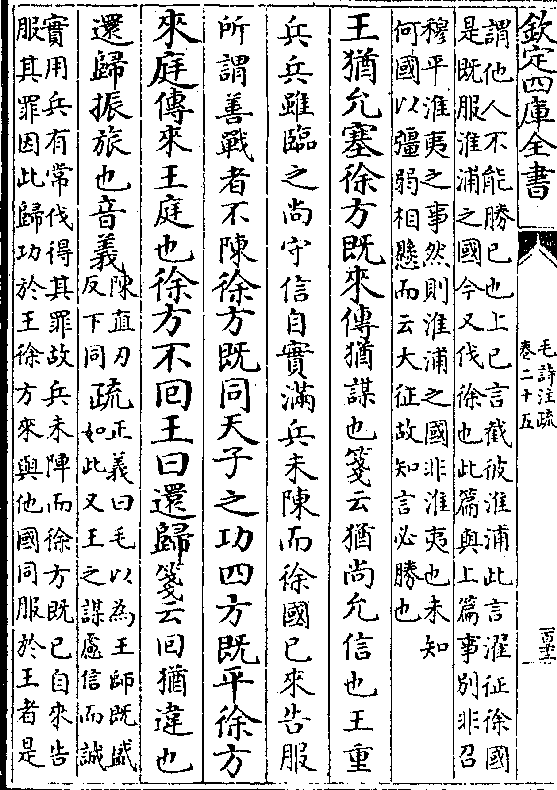 欽定四庫全書
毛詩注疏
卷二十五
謂他人不能勝已也上已言截彼淮浦此言濯征徐國
是既服淮浦之國今又伐徐也此篇與上篇事別非召
穆平淮夷之事然則淮浦之國非淮夷也未知
何國以彊弱相懸而云大征故知言必勝也
王猶允塞徐方既來傳猶謀也箋云猶尚允信也王重
兵兵雖臨之尚守信自實滿兵未陳而徐國已來告服
所謂善戰者不陳徐方既同天子之功四方既平徐方
來庭傳來王庭也徐方不回王曰還歸箋云回猶違也
還歸振旅也音義陳直刃
反下同疏正義曰毛以為王師既盛
如此又王之謀慮信而誠
實用兵有常伐得其罪故兵未陣而徐方既已自來告
服其罪因此歸功於王徐方來與他國同服於王者是